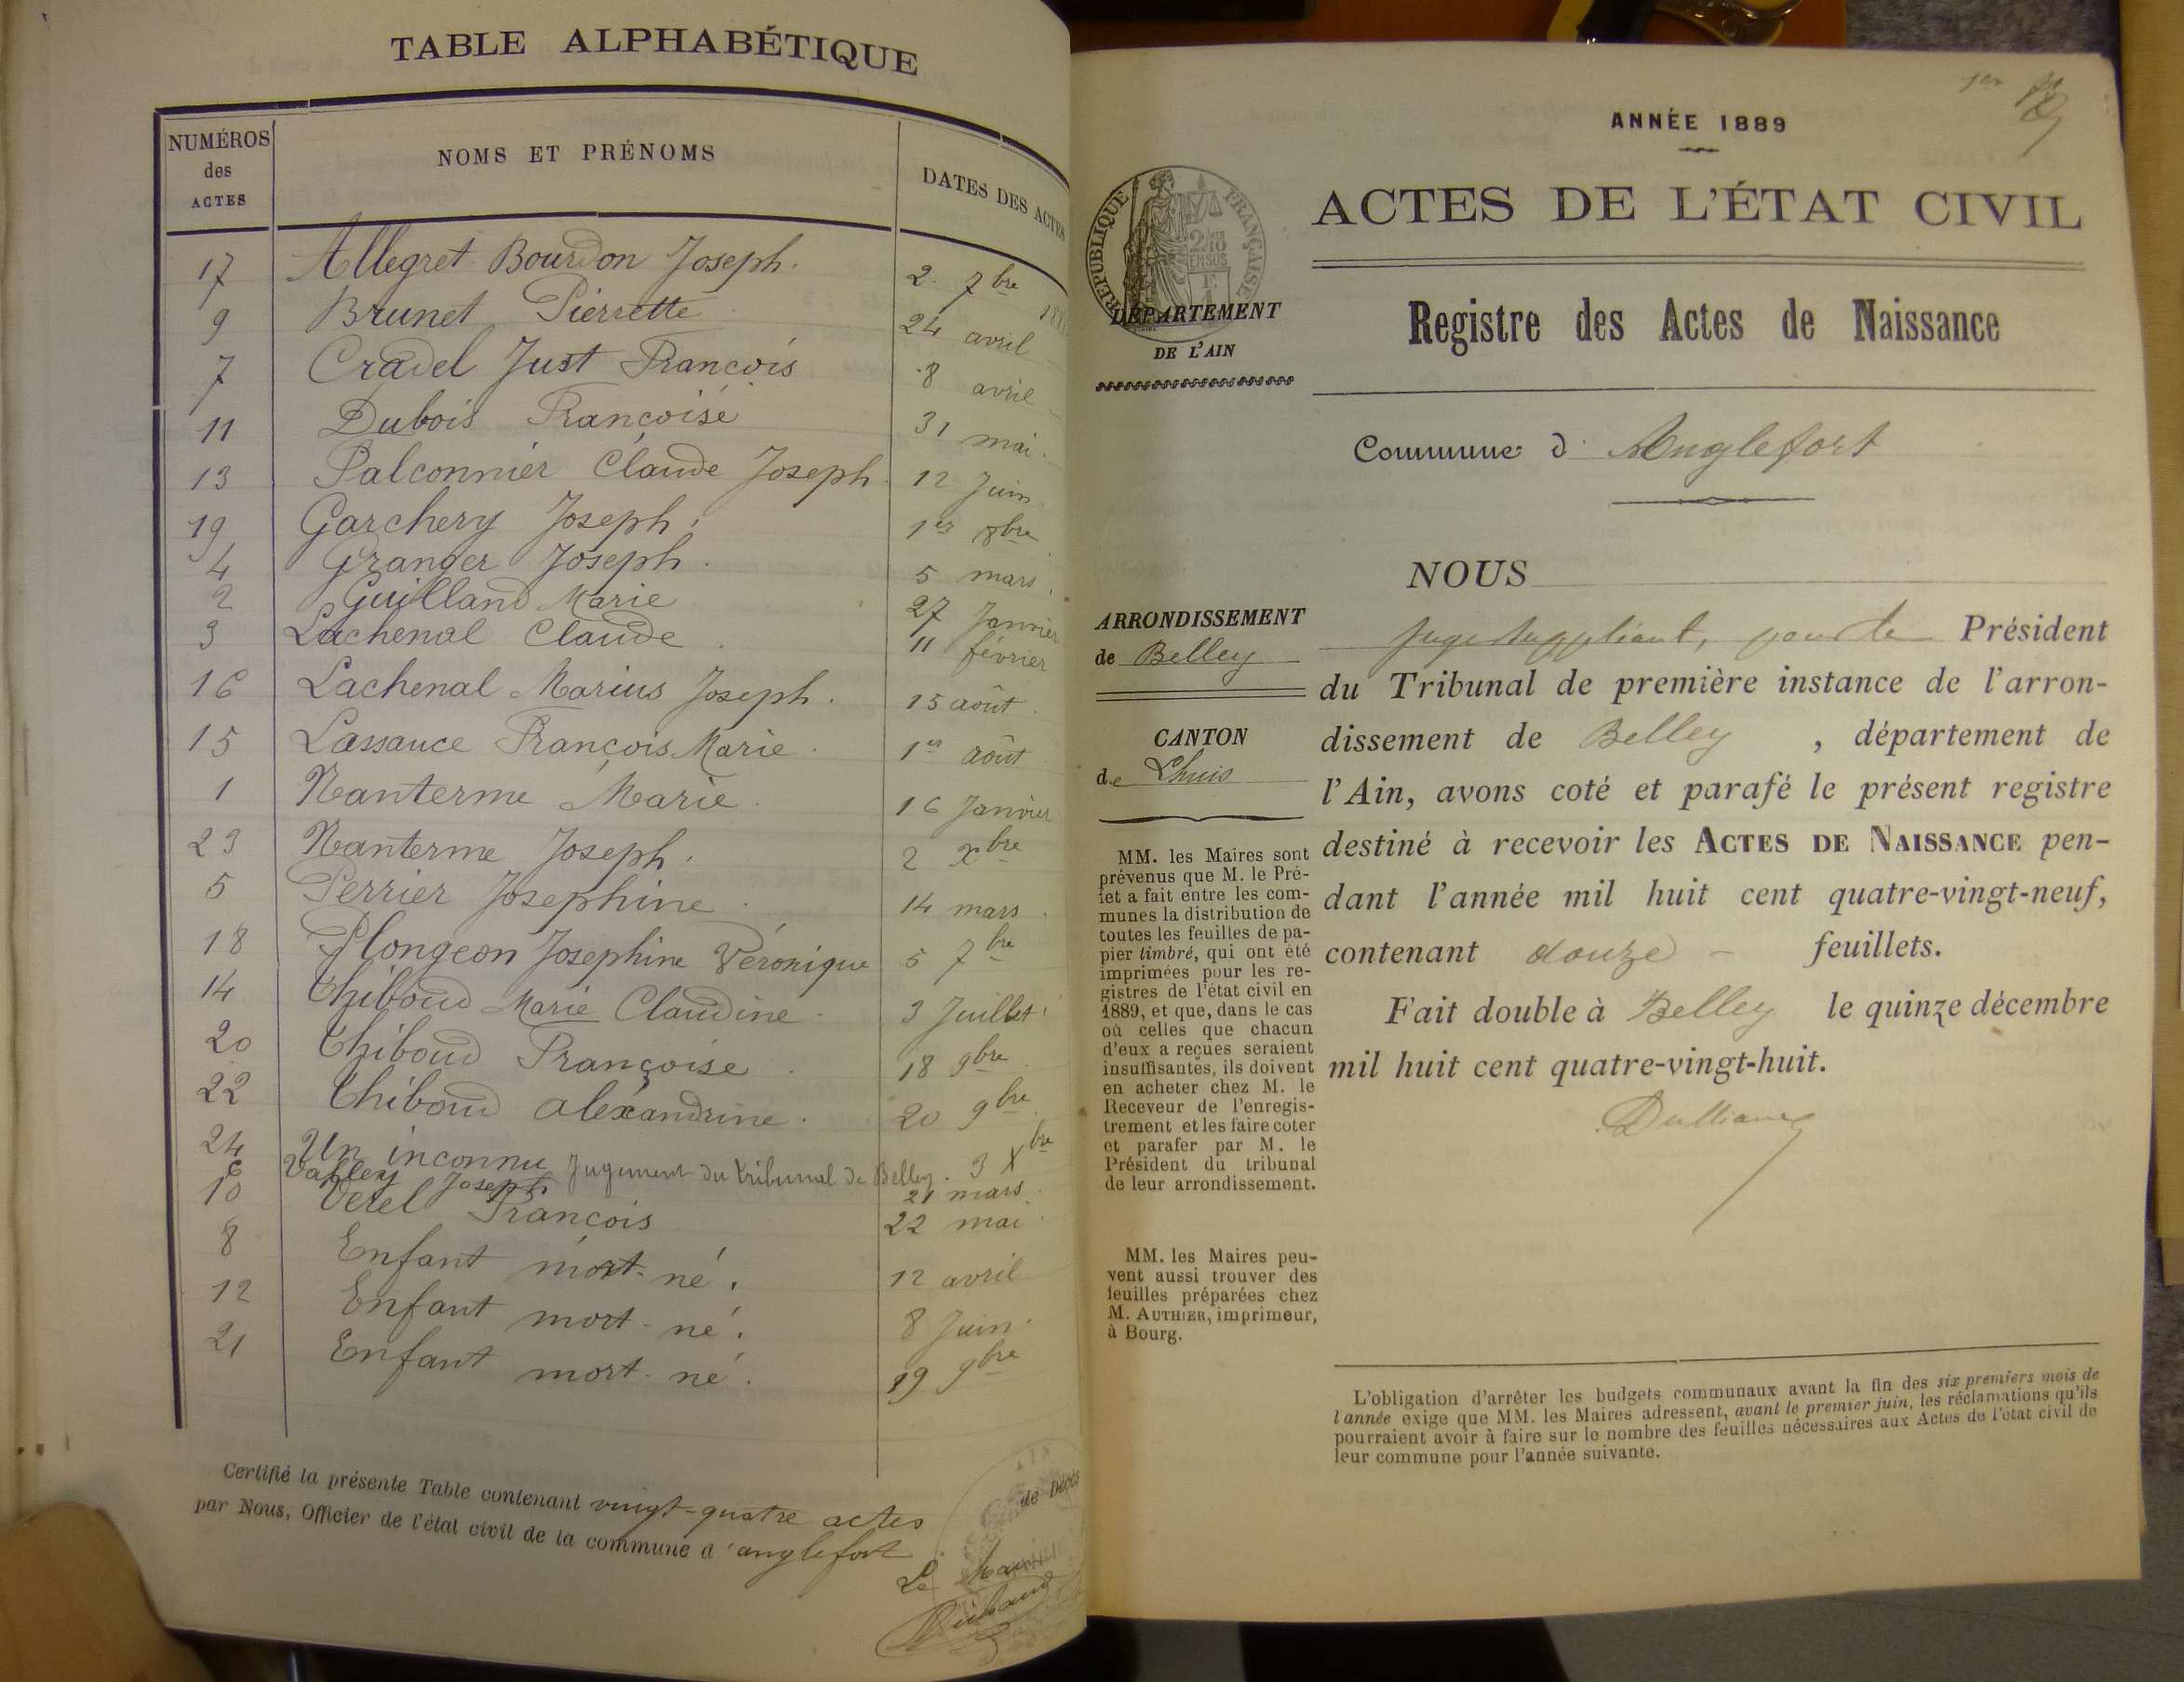 TABLE ALPHABÉTIQUE
NUMÉROS des ACTES
NOMS ET PRÉNOMS
DATES DES ACTES
17 Allegret Bourdon Joseph. 2. 7bre
9 Brunet Pierrette 24 avril
7 Cradel Just François 8 avril
11 Dubois Françoise 31 mai.
13 Falconnier Claude Joseph 12 Juin
19 Garchery Joseph. 1er 8bre
4 Granger Joseph. 5 mars
2 Guilland Marie 27 Janvier
3 Lachenal Claude 11 février
16 Lachenal Marius Joseph. 15 août.
15 Lassauce François Marie. 1er août
1 Nanterme Marie. 16 Janvier
23 Nanterme Joseph. 2 xbre
5 Perrier Josephine. 14 mars
18 Plongeon Josephine Véronique 5 7bre
14 Thiboud Marie Claudine. 3 Juillet
20 Thiboud Françoise. 18 9bre
22 Thiboud aléxandrine. 20 9bre
24 Un inconnu Jugement du tribunal de Belley. 3 Xbre
6 Valley Joseph 21 mars
10 Verel François 22 mai
8 Enfant mort-né. 12 avril
12 Enfant mort-né. 8 Juin.
21 Enfant mort-né. 19 9bre
Certifié la présente Table contenant vingt-quatre actes de Décès
par Nous, Officier de l'état civil de la commune d'anglefort
Le
1er
ANNÉE 1889
ACTES DE L'ÉTAT CIVIL
RÉPUBLIQUE FRANÇAISE
DÉPARTEMENT
DE L'AIN
Registre des Actes de Naissance
Commune d' Anglefort
ARRONDISSEMENT
de Belley
CANTON
de Lhuis
MM. les Maires sont
prévenus que M. le Pré-
fet a fait entre les com-
munes la distribution de
toutes les feuilles de pa-
pier timbré, qui ont été
imprimées pour les re-
gistres de l'état civil en
1889, et que, dans le cas
où celles que chacun
d'eux a reçues seraient
insuffisantes, ils doivent
en acheter chez M. le
Receveur de l'enregis-
trement et les faire coter
et parafer par M. le
Président du tribunal
de leur arrondissement.
MM. les Maires peu-
vent aussi trouver des
feuilles préparées chez
M. AUTHIER, imprimeur,
à Bourg.
NOUS
Juge suppléant, pour le Président
du Tribunal de première instance de l'arron-
dissement de Belley, département de
l'Ain, avons coté et parafé le présent registre
destiné à recevoir les ACTES DE NAISSANCE pen-
dant l'année mil huit cent quatre-vingt-neuf,
contenant douze - feuillets.
Fait double à Belley le quinze décembre
mil huit cent quatre-vingt-huit.
L'obligation d'arrêter les budgets communaux avant la fin des six premiers mois de
l'année exige que MM. les Maires adressent, avant le premier juin, les réclamations qu'ils
pourraient avoir à faire sur le nombre des feuilles nécessaires aux Actes de l'état civil de
leur commune pour l'année suivante.